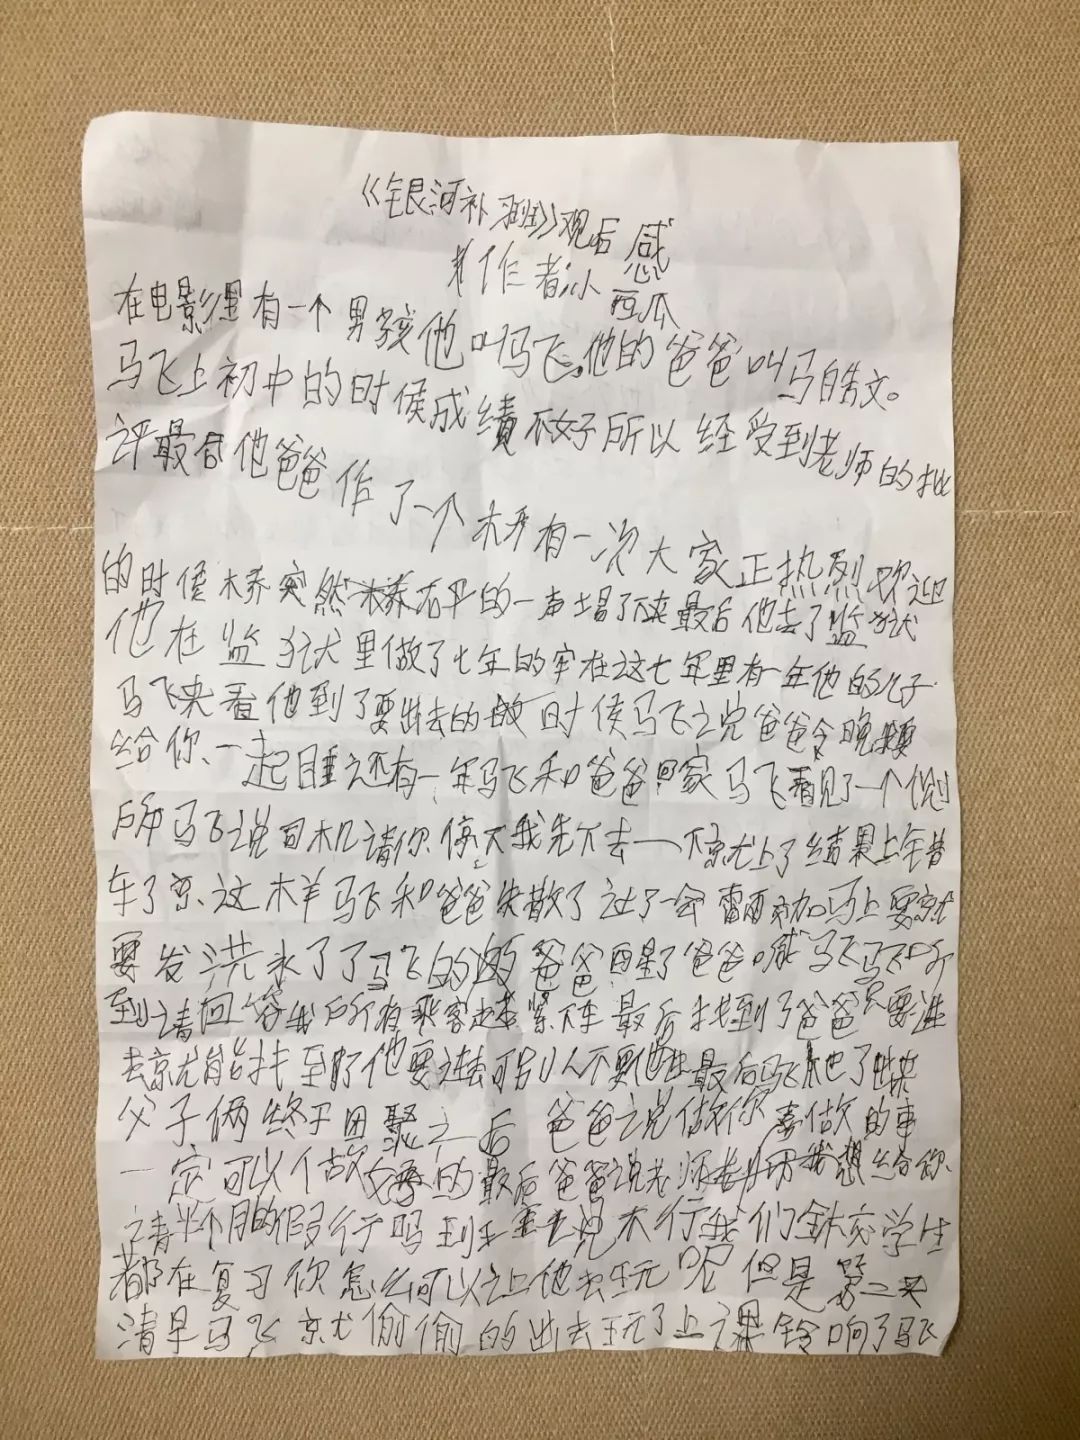 《银河补习班》观后感
作者小西瓜
在电影里有一个男孩他叫马飞。他的爸爸叫马皓文。
马飞上初中的时候成绩不好所以经受到老师的批
评最后他爸爸作了一个桥有一次大家正热烈欢迎
的时候桥突然的一声塌了下来最后他去了监狱
他在监狱里做了七年的牢在这七年里有一年他的儿子
马飞来看他到了要出去的时候马飞说爸爸今晚要
给你一起睡还有一年马飞和爸爸回家马飞看见了一个厕
所马飞说司机请你停下我先下去一下就上了结果上错
车了就这样马飞和爸爸失散了过了一会雷雨加马上要就
要发洪水了了马飞的爸爸醒了爸爸喊马飞马飞听
到请回答我所有乘客赶紧下车最后找到了爸爸只要进
去就能找到了他要进去可别人不要他进最后马飞也了出来
父子俩终于团聚之后爸爸说做你喜做的事
一定可以做的最后爸爸说老师我想给你
请半个月的假行吗主说不行我们学生
都在复习你怎么可以让他去玩呢但是第二天
清早马飞就偷偷的出去玩了上课铃响了马飞